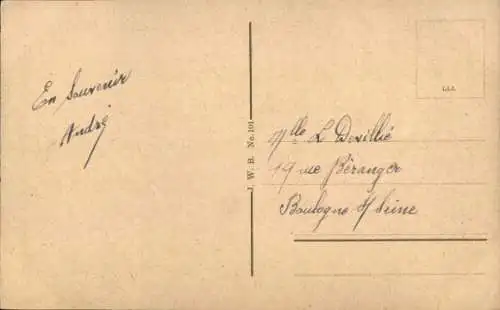 En Souvenir
André
J. W. B. No. 101
Mlle L Devillié
19 rue Béranger
Boulogne s/ Seine